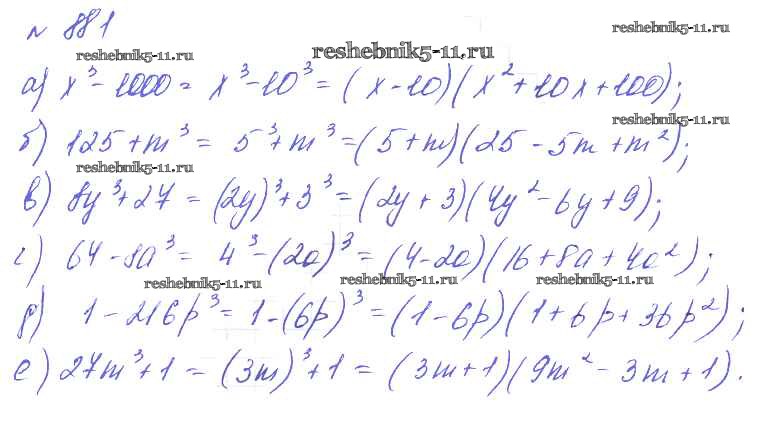 № 881
reshebnik5-11.ru
reshebnik5-11.ru
reshebnik5-11.ru
а) x³-1000 = x³-10³ = (x-10)(x²+10x+100);
reshebnik5-11.ru
б) 125+m³ = 5³+m³ = (5+m)(25-5m+m²);
reshebnik5-11.ru
в) 8y³+27 = (2y)³+3³ = (2y+3)(4y²-6y+9);
г) 64-8a³ = 4³-(2a)³ = (4-2a)(16+8a+4a²);
reshebnik5-11.ru reshebnik5-11.ru reshebnik5-11.ru
д) 1-216p³ = 1-(6p)³ = (1-6p)(1+6p+36p²);
е) 27m³+1 = (3m)³+1 = (3m+1)(9m²-3m+1).